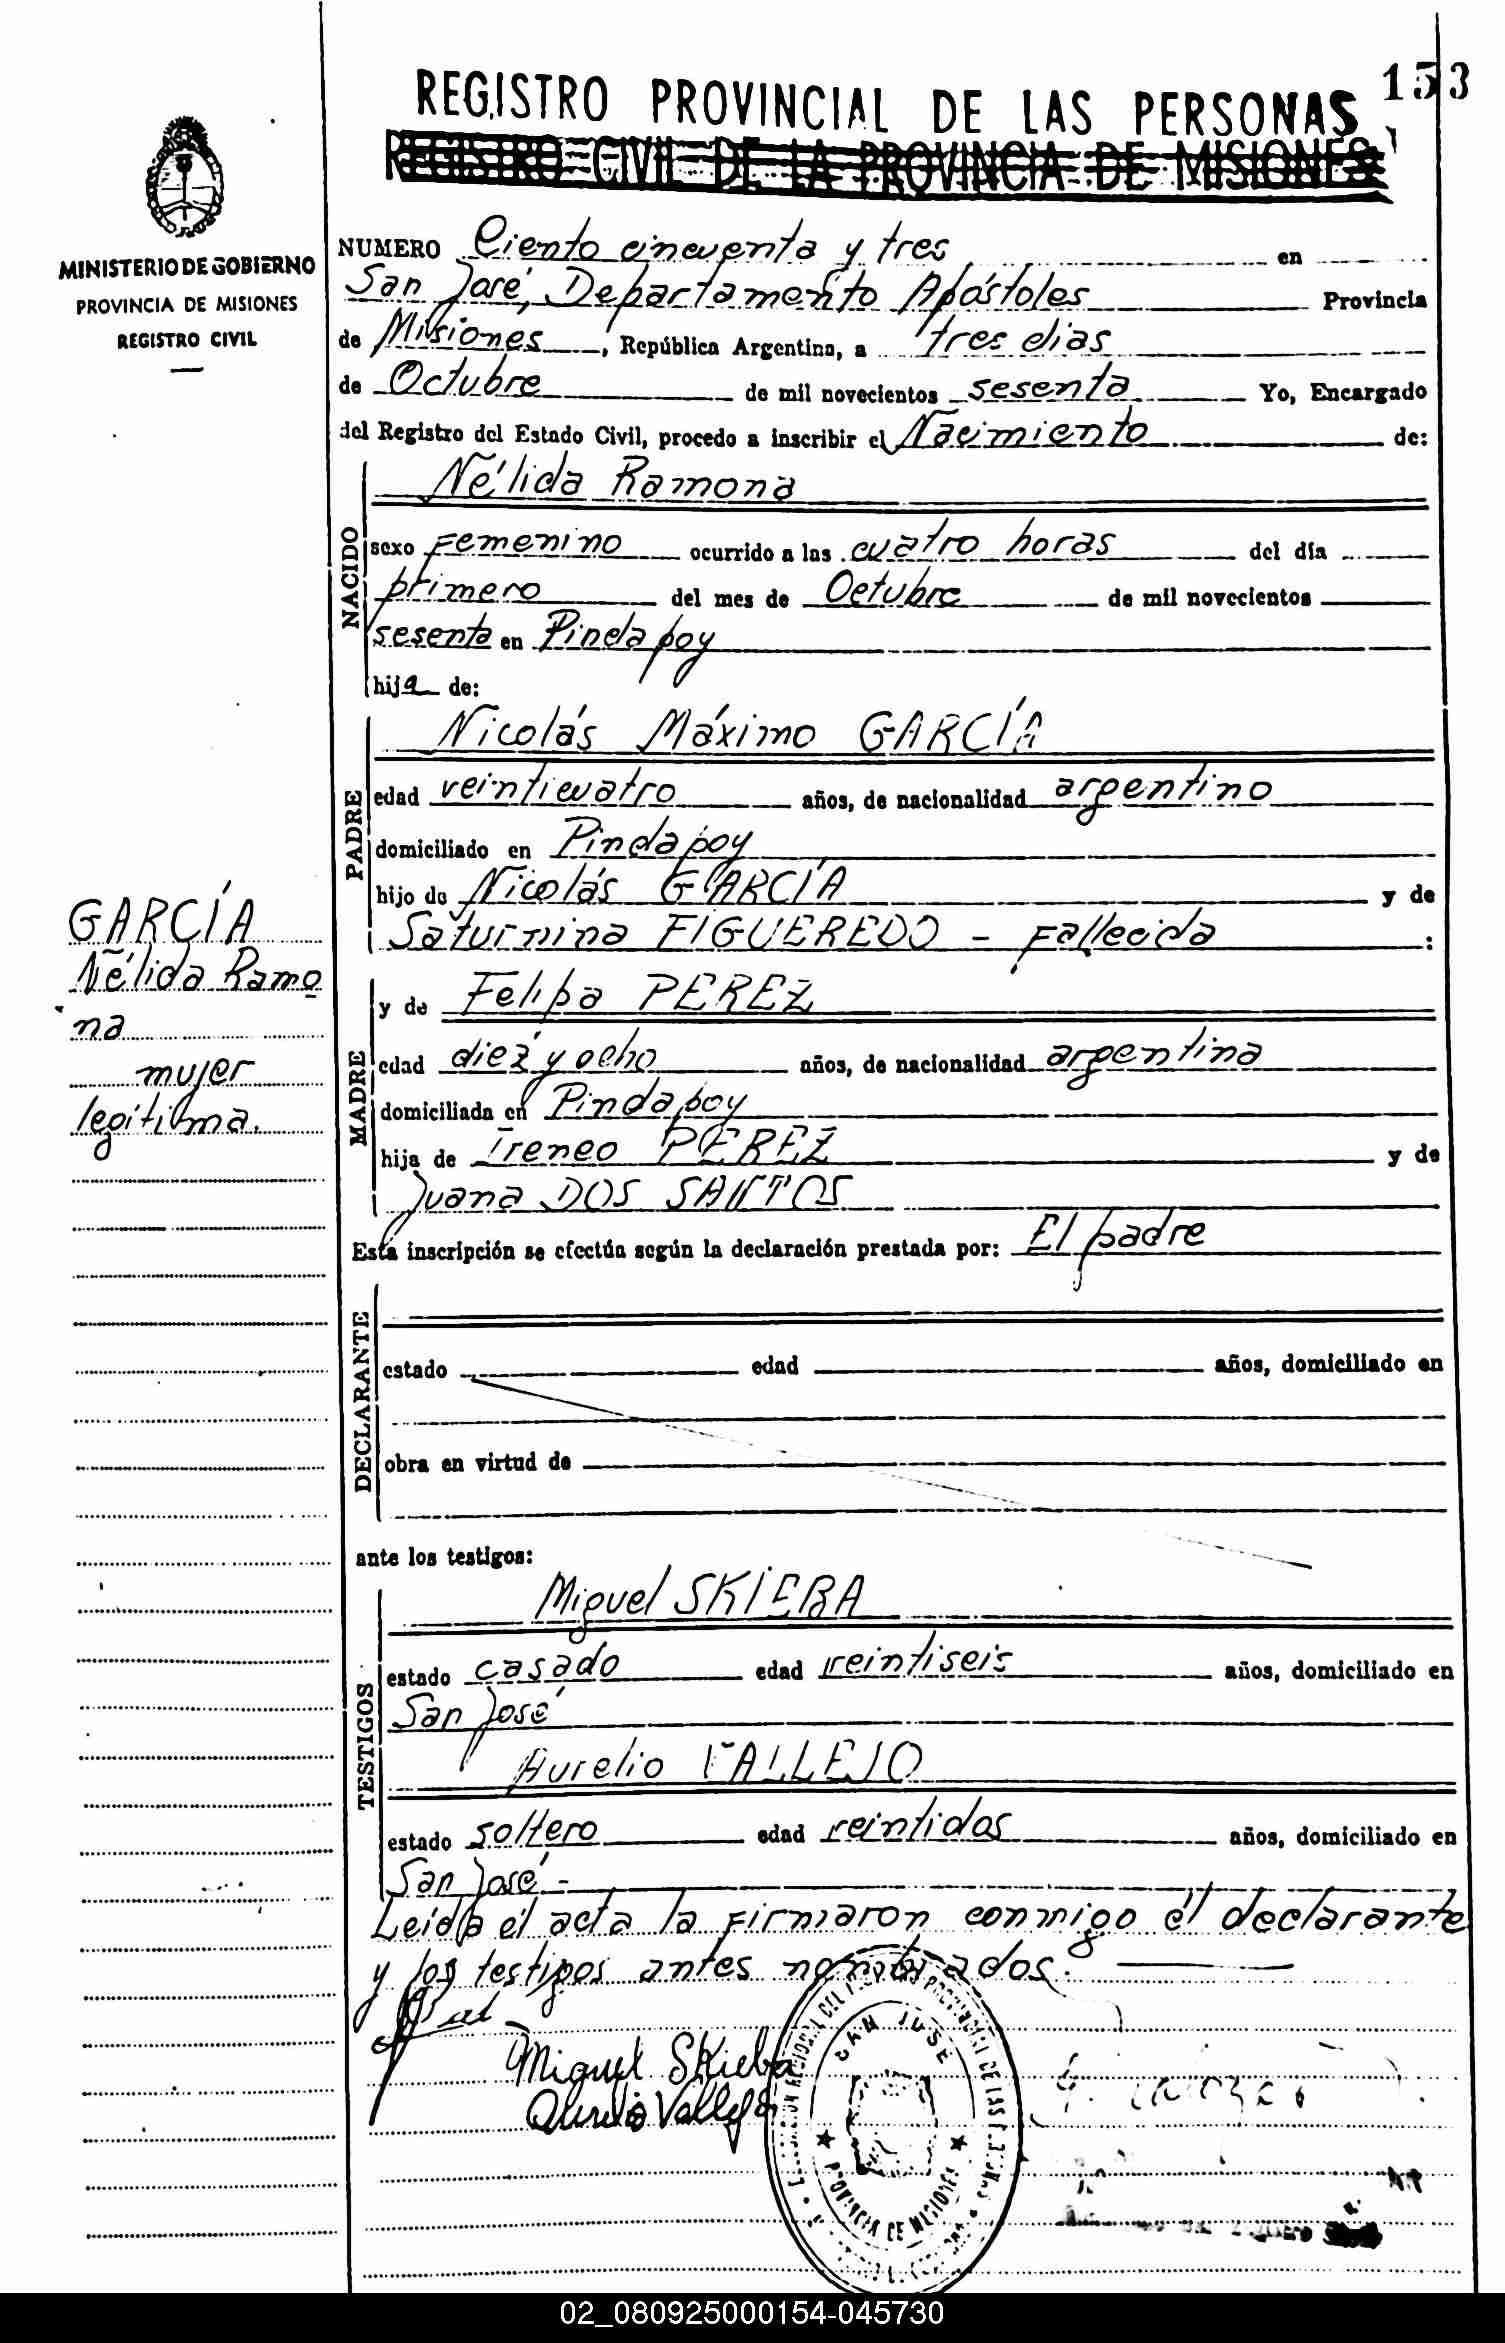 153
REGISTRO PROVINCIAL DE LAS PERSONAS
REGISTRO CIVIL DE LA PROVINCIA DE MISIONES
MINISTERIO DE GOBIERNO
PROVINCIA DE MISIONES
REGISTRO CIVIL
NUMERO Ciento cincuenta y tres en
San José, Departamento Apóstoles Provincia
de Misiones, República Argentina, a tres dias
de Octubre de mil novecientos sesenta Yo, Encargado
del Registro del Estado Civil, procedo a inscribir el Nacimiento de:
NACIDO
Nélida Ramona
sexo Femenino ocurrido a las cuatro horas del día
primero del mes de Octubre de mil novecientos
sesenta en Pindapoy
hija de:
PADRE
Nicolás Máximo GARCÍA
edad veinticuatro años, de nacionalidad argentino
domiciliado en Pindapoy
hijo de Nicolás GARCÍA y de
Saturnina FIGUEREDO - Fallecida :
MADRE
y de Felipa PEREZ
edad diez y ocho años, de nacionalidad argentina
domiciliada en Pindapoy
hija de Ireneo PEREZ y de
Juana DOS SANTOS
GARCÍA
Nélida Ramo
na
mujer
legítima.
Esta inscripción se efectúa según la declaración prestada por: El padre
DECLARANTE
estado edad años, domiciliado en
obra en virtud de
ante los testigos:
TESTIGOS
Miguel SKIEBA
estado casado edad veintiseis años, domiciliado en
San José
Aurelio VALLEJO
estado soltero edad veintidos años, domiciliado en
San José -
Leída el acta la firmaron conmigo el declarante
y los testigos antes nombrados.
Miguel Skieba
Aurelio Vallejo
SAN JOSE
PROVINCIA DE MISIONES
02_080925000154-045730